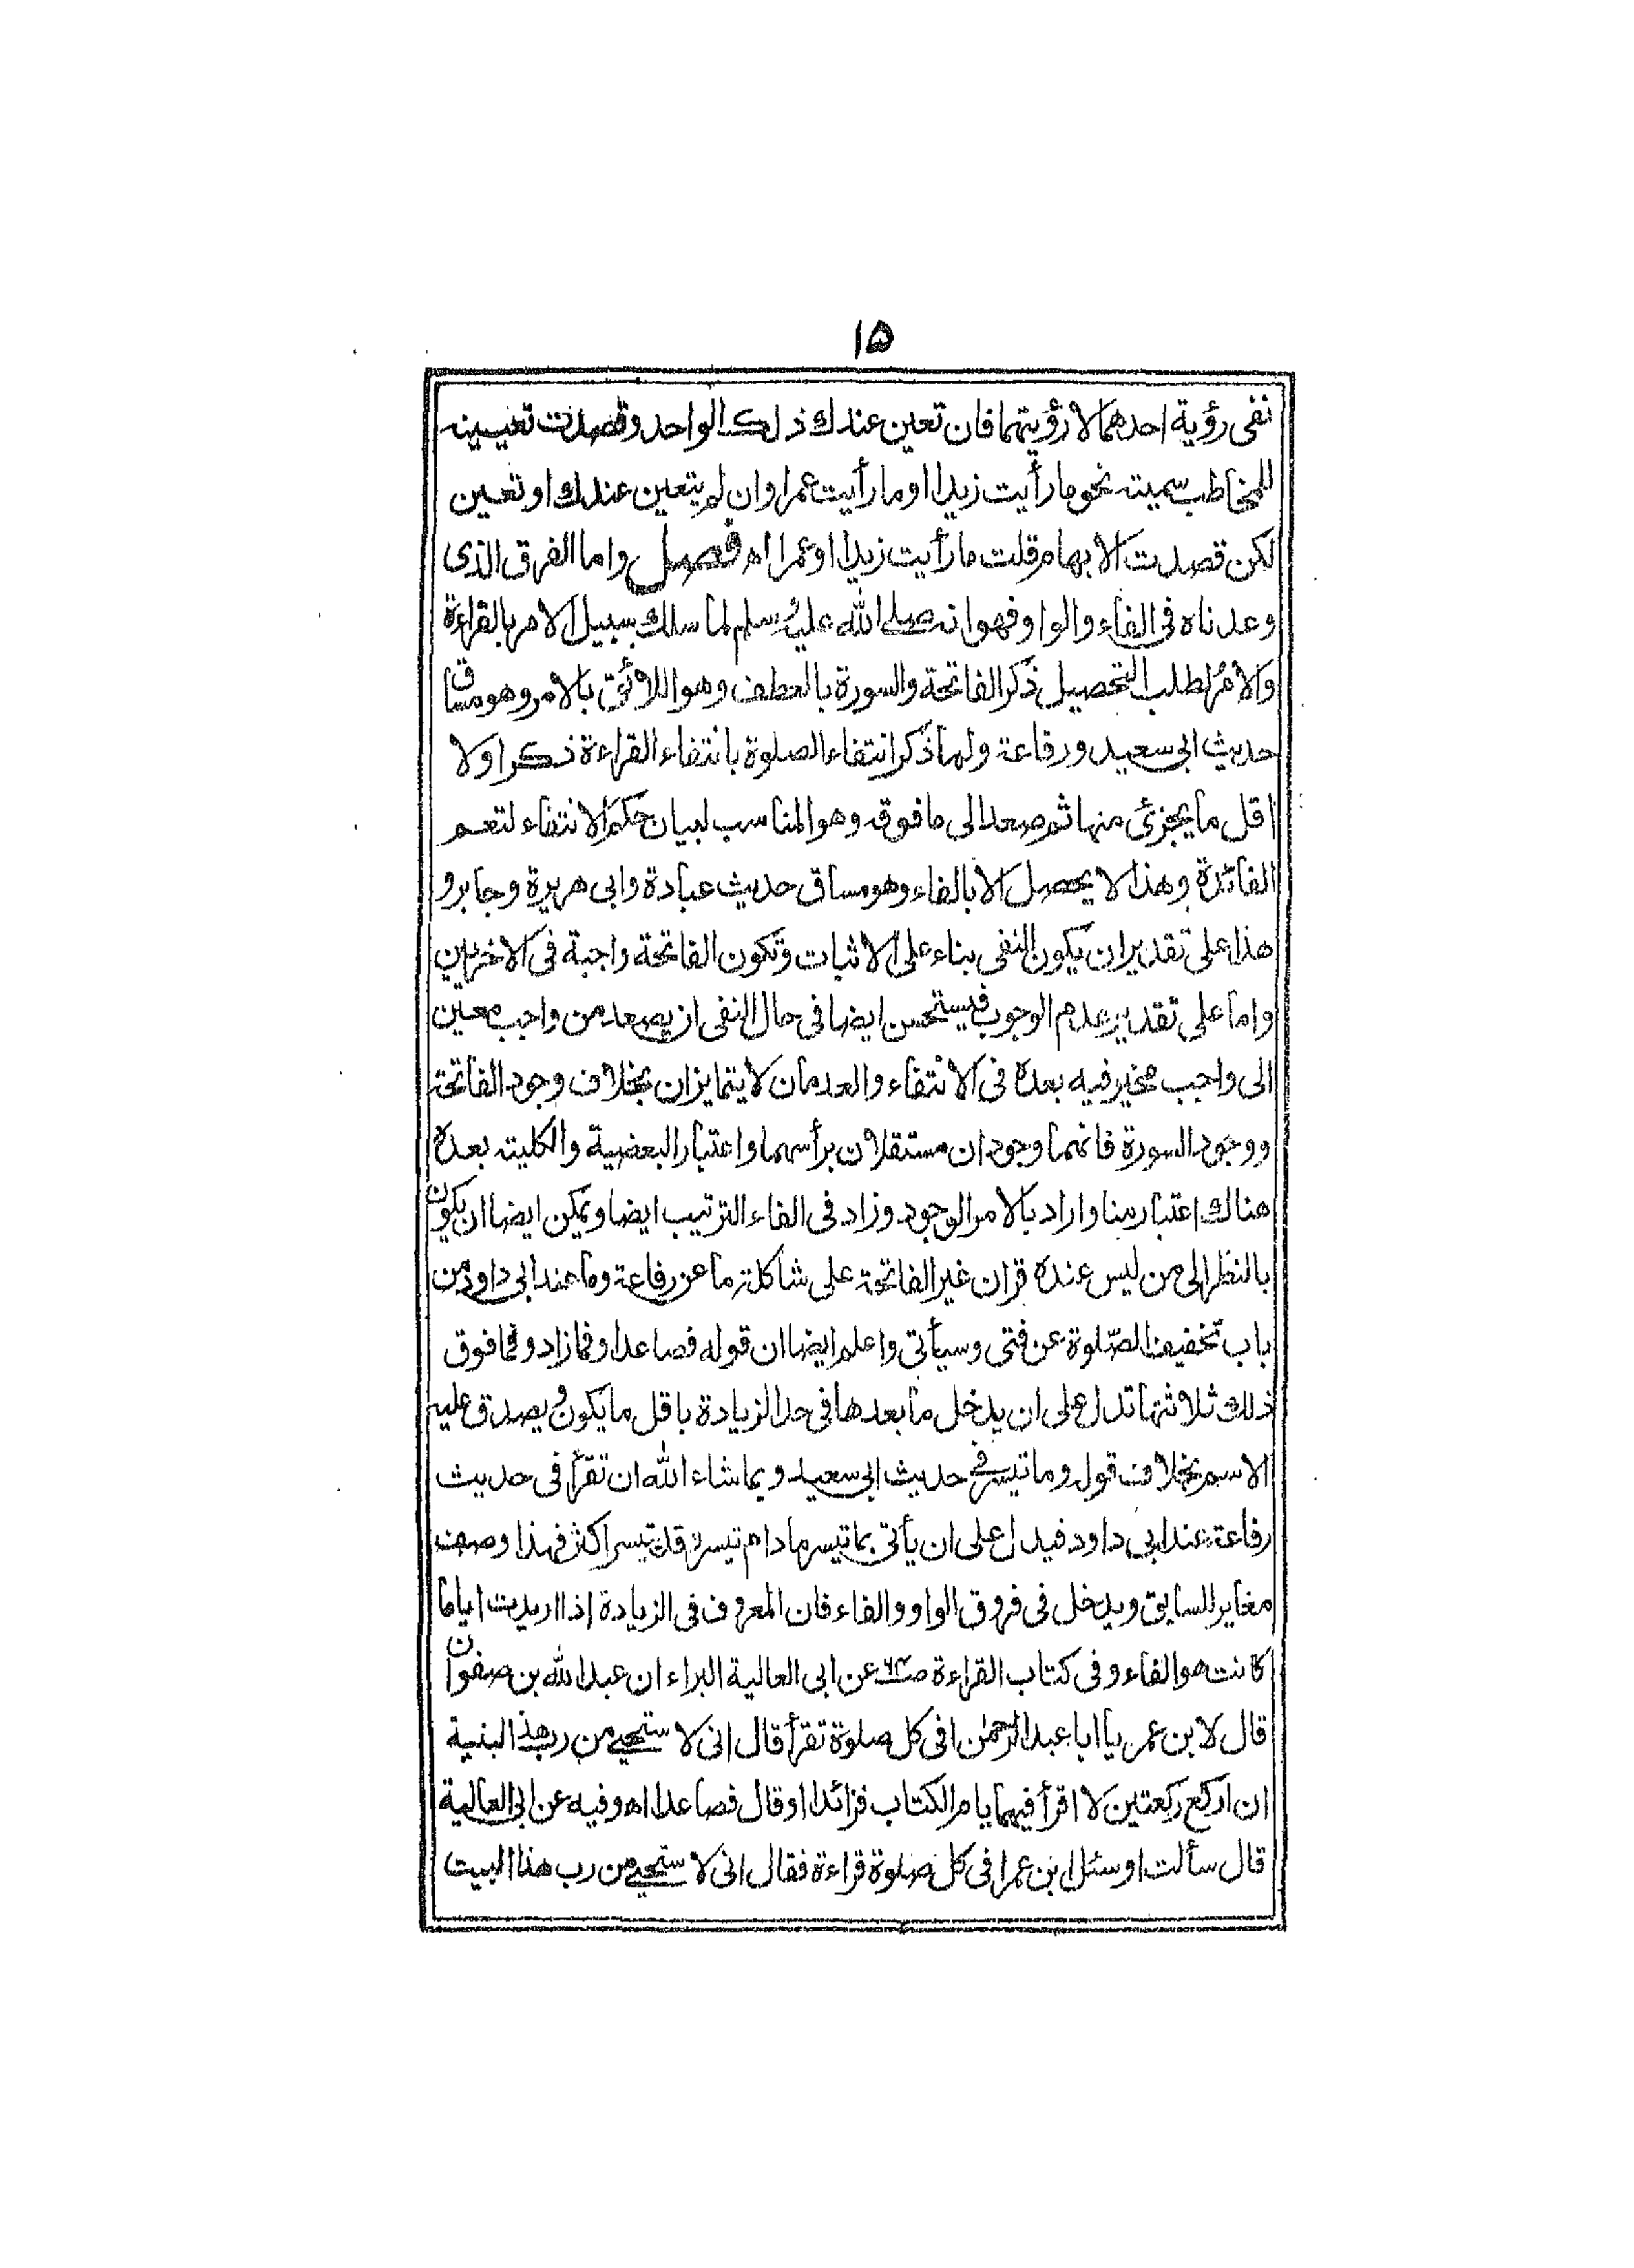 ١٥
نفى رؤية احدهما لا رؤيتهما فان تعين عندك ذلك الواحد وقصدت تعيينه
للمخاطب سميته نحو ما رأيت زيدا او ما رأيت عمرا وان لم يتعين عندك او تعين
لكن قصدت الابهام قلت ما رأيت زيدا او عمرا اه فصل واما الفرق الذى
وعدناه فى الفاء والواو فهو انه صلى الله عليه وسلم لما سلك سبيل الامر بالقراءة
والامر لطلب التحصيل ذكر الفاتحة والسورة بالعطف وهو اللائق بالامر وهو مساق
حديث ابى سعيد ورفاعة ولما ذكر انتفاء الصلوة بانتفاء القراءة ذكر اولا
اقل ما يجزئ منها ثم صعد الى ما فوقه وهو المناسب لبيان حكم الانتفاء لتعم
الفائدة وهذا لا يحصل الا بالفاء وهو مساق حديث عبادة وابى هريرة وجابر و
هذا على تقدير ان يكون النفى بناء على الاثبات وتكون الفاتحة واجبة فى الاخريين
واما على تقدير عدم الوجوب فيستحسن ايضا فى حال النفى ان يصعد من واجب معين
الى واجب مخير فيه بعده فى الانتفاء والعدمان لا يتمايزان بخلاف وجود الفاتحة
ووجود السورة فانهما وجودان مستقلان برأسهما واعتبار البعضية والكلية بعده
هناك اعتبار منا واراد بالامر الوجود وزاد فى الفاء الترتيب ايضا ويمكن ايضا ان يكون
بالنظر الى من ليس عنده قران غير الفاتحة على شاكلة ما عن رفاعة وما عند ابى داود من
باب تخفيف الصّلوة عن فتى وسيأتى واعلم ايضا ان قوله فصاعدا وفما زاد وفما فوق
ذلك ثلاثتها تدل على ان يدخل ما بعدها فى حد الزيادة باقل ما يكون ويصدق عليه
الاسم بخلاف قوله وما تيسر فى حديث ابى سعيد وبما شاء الله ان تقرأ فى حديث
رفاعة عند ابى داود فيدل على ان يأتى بما تيسر ما دام تيسر وقد تيسر اكثر فهذا وصف
مغاير للسابق ويدخل فى فروق الواو والفاء فان المعروف فى الزيادة اذا اريدت اياما
كانت هو الفاء وفى كتاب القراءة ص٦٤ عن ابى العالية البراء ان عبد الله بن صفوان
قال لابن عمر يا ابا عبد الرحمٰن افى كل صلوة تقرأ قال انى لا ستحيى من رب هذه البنية
ان اركع ركعتين لا اقرأ فيهما بام الكتاب فزائدا او قال فصاعدا اه وفيه عن ابى العالية
قال سألت او سئل ابن عمر افى كل صلوة قراءة فقال انى لا ستحيى من رب هذا البيت